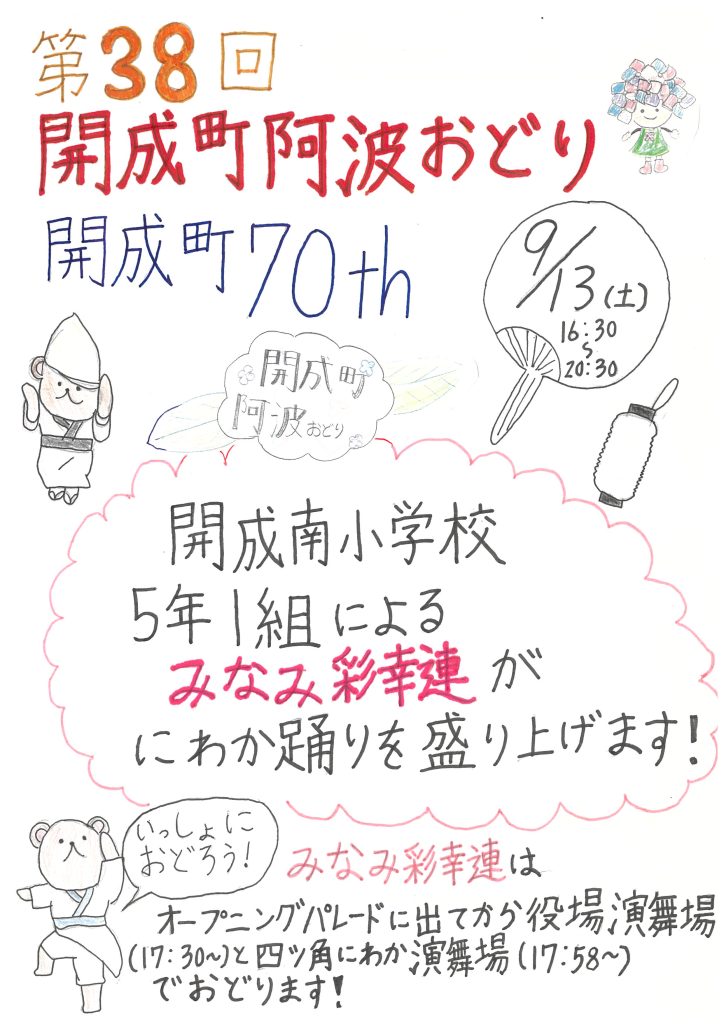 第38回
開成町阿波おどり
開成町70th
9/13(土)
16:30
~
20:30
開成町
阿波おどり
開成南小学校
5年1組による
みなみ彩幸連が
にわか踊りを盛り上げます!
いっしょに
おどろう!
みなみ彩幸連は
オープニングパレードに出てから役場演舞場
(17:30~)と四ツ角にわか演舞場(17:58~)
でおどります!